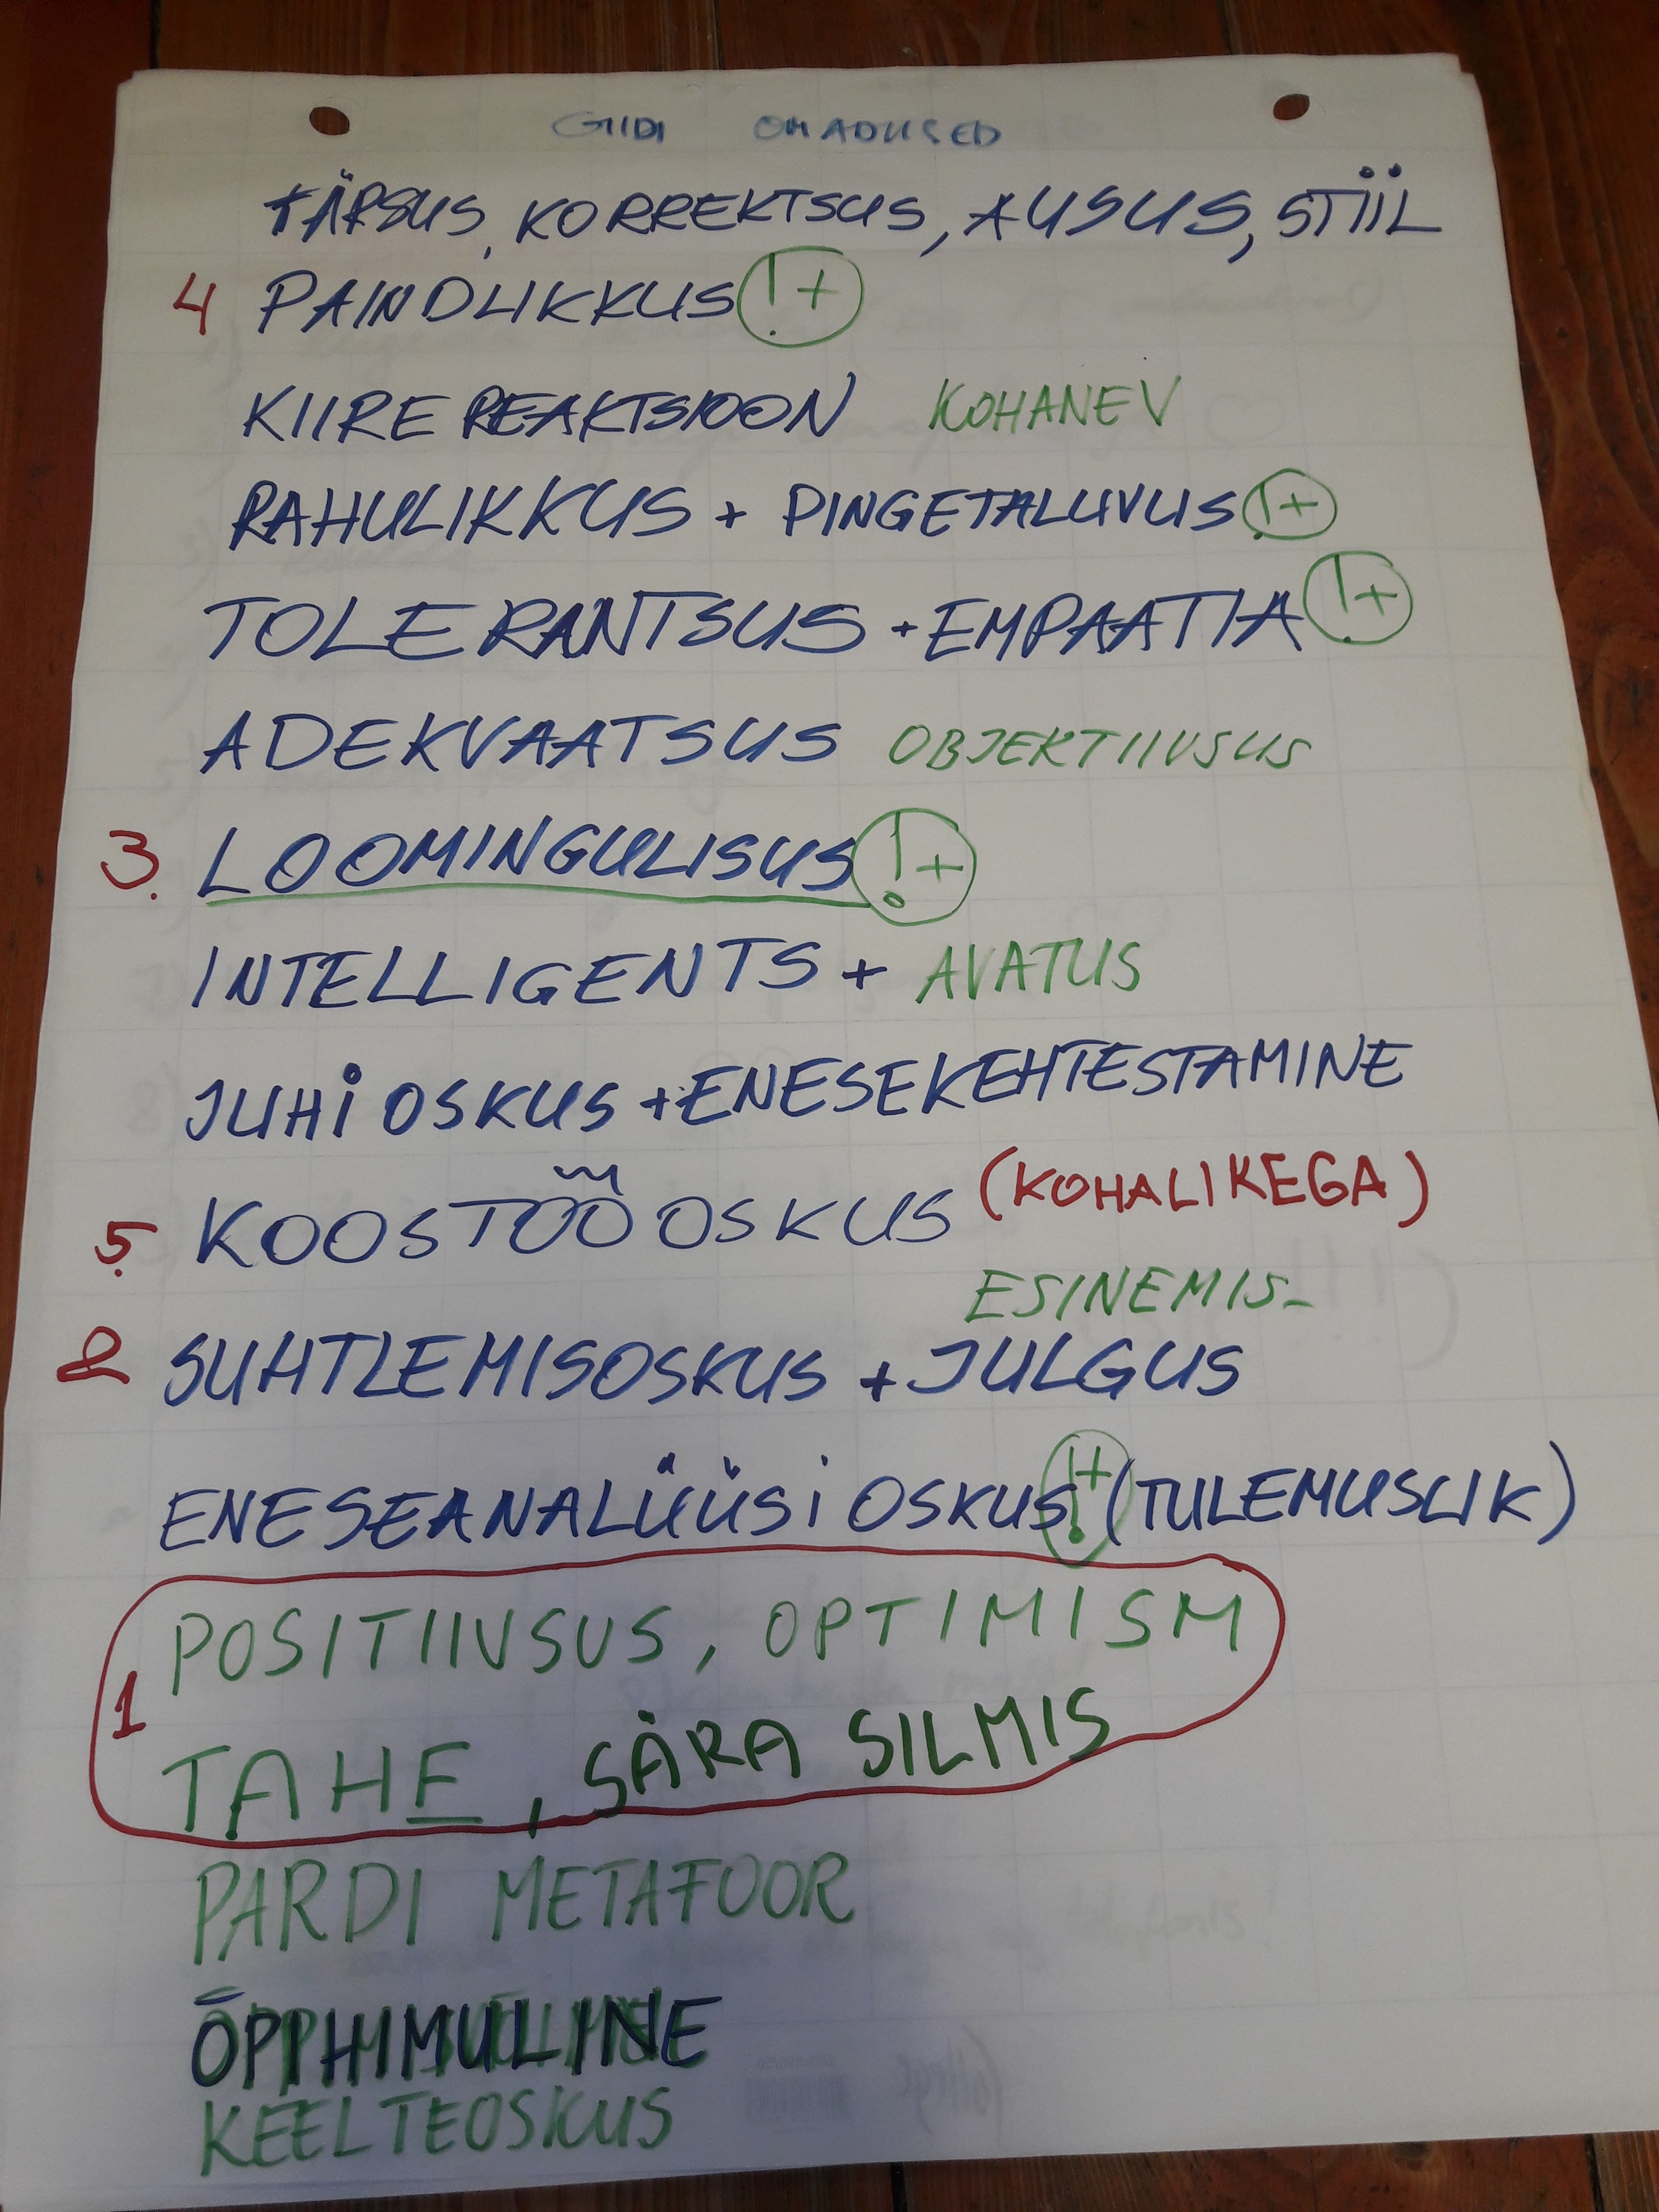 GIIDI OMADUSED
TÄPSUS, KORREKTSUS, AUSUS, STIIL
4 PAINDLIKKUS !+
KIIRE REAKTSIOON KOHANEV
RAHULIKKUS + PINGETALUVUS !+
TOLERANTSUS + EMPAATIA !+
ADEKVAATSUS OBJEKTIIVSUS
3. LOOMINGULISUS !+
INTELLIGENTS + AVATUS
JUHI OSKUS + ENESEKEHTESTAMINE
5. KOOSTÖÖ OSKUS (KOHALIKEGA)
ESINEMIS-
2 SUHTLEMISOSKUS + JULGUS
ENESEANALÜÜSI OSKUS !+ (TULEMUSLIK)
POSITIIVSUS, OPTIMISM
1 TAHE, SÄRA SILMIS
PARDI METAFOOR
ÕPIHIMULINE
KEELTEOSKUS